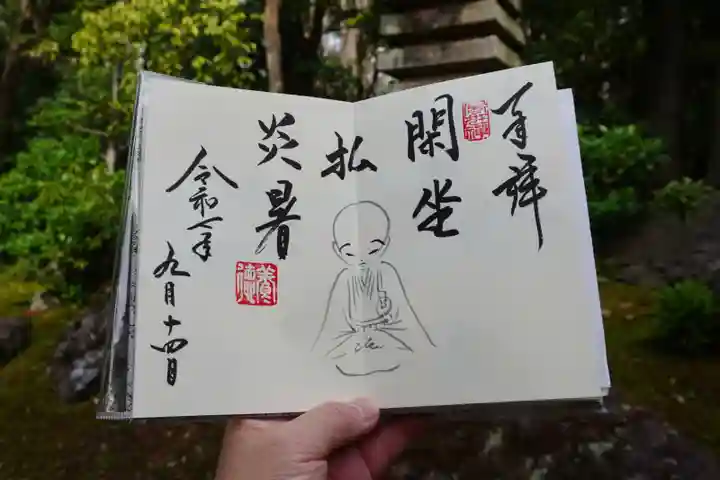 奉拝
閑坐
払
炎暑
令和年
九月十四日
養徳